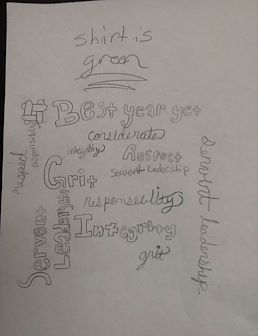 shirt is
green
# Best year yet
considerate
integrity
Respect
Servent Leadership
respect
responsibility
Grit
responsibility
Integrity
grit
Servant
Leadership
servent leadership